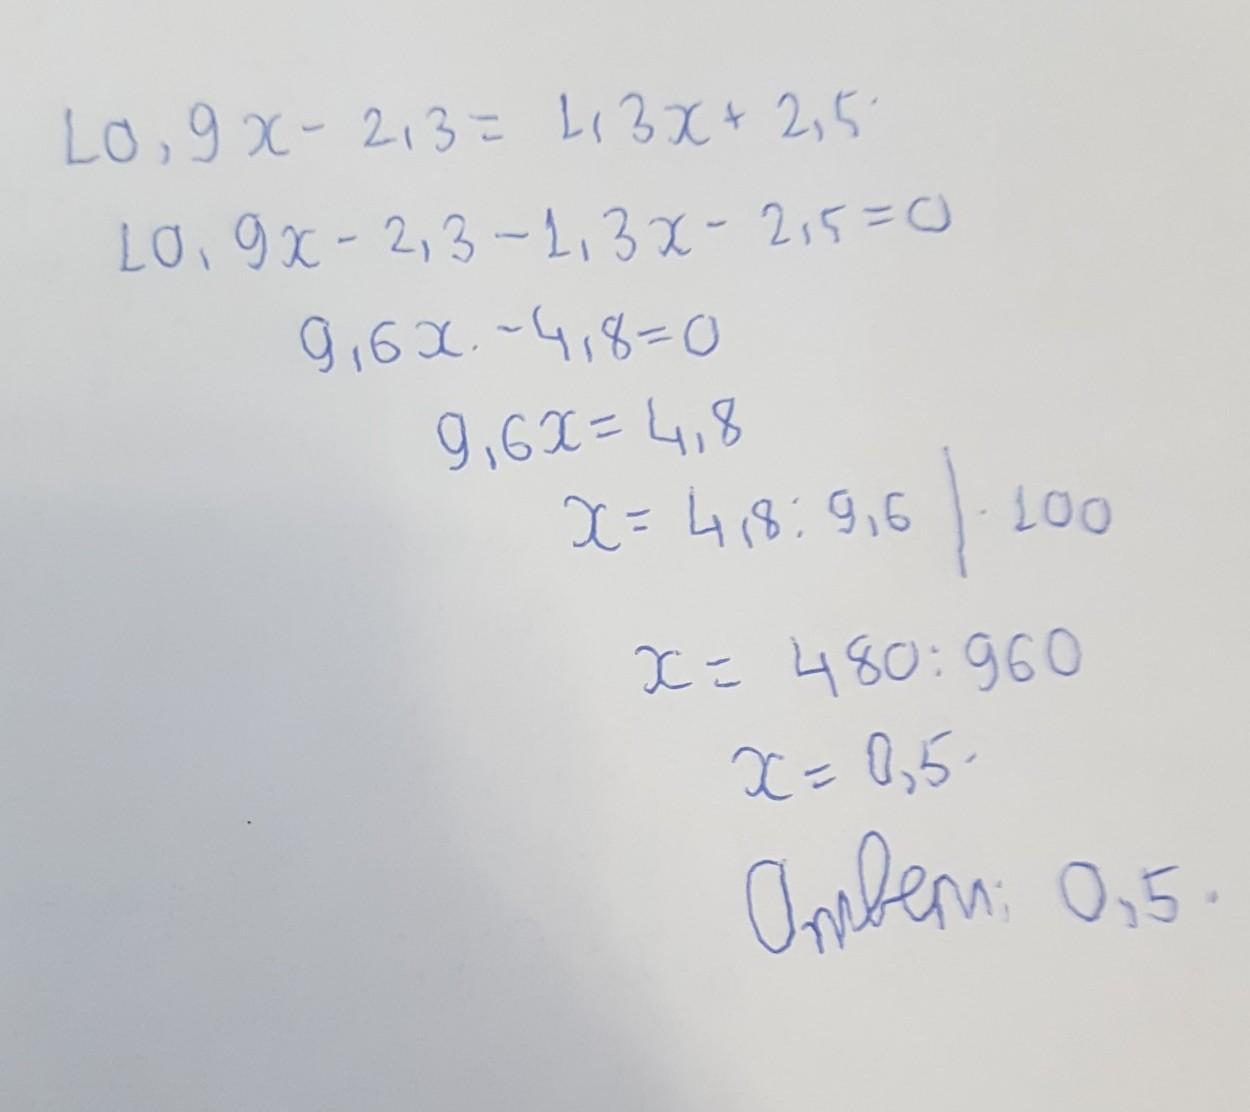 10,9x - 2,3 = 1,3x + 2,5
10,9x - 2,3 - 1,3x - 2,5 = 0
9,6x - 4,8 = 0
9,6x = 4,8
x = 4,8 : 9,6 | · 100
x = 480 : 960
x = 0,5.
Ответ: 0,5.